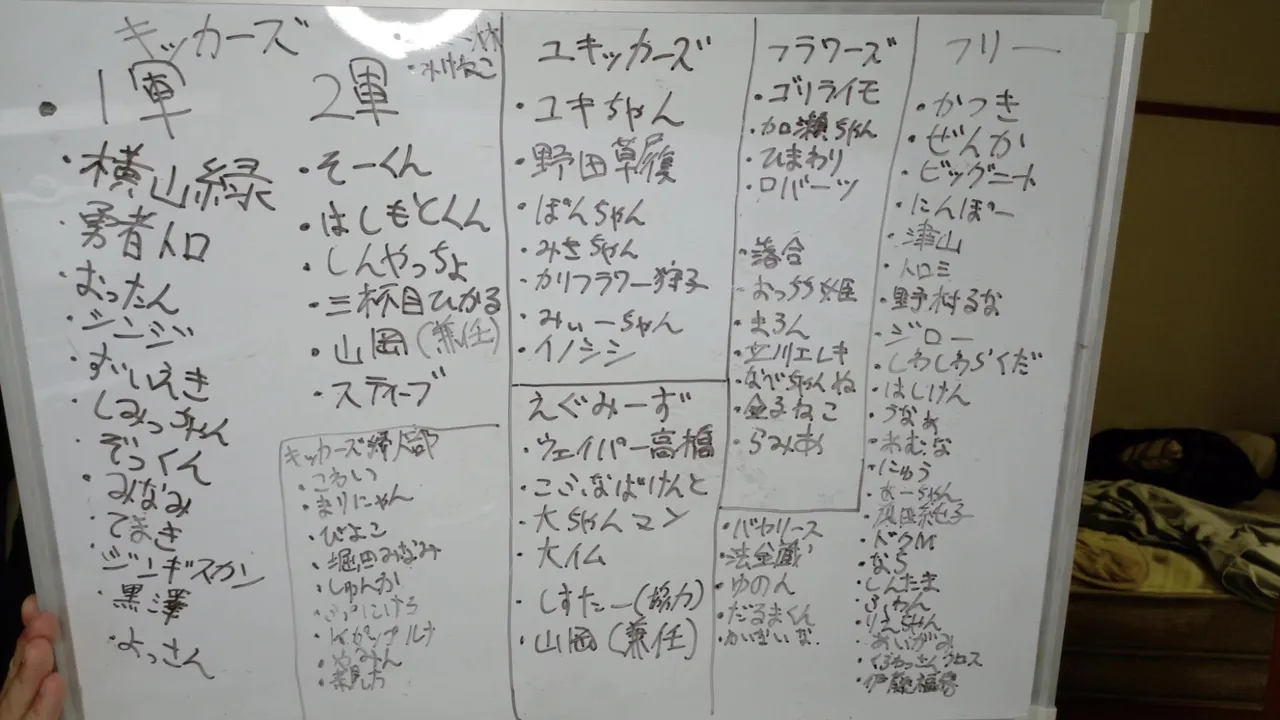 キッカーズ
1軍
・横山緑
・勇者トロ
・おったん
・ジンジ
・ずいえき
・しみっちゃん
・ぞっくん
・みなみ
・てまき
・ジンギスカン
・黒澤
・よっさん
2軍
・みけねこ
・そーくん
・はしもとくん
・しんやっちょ
・三杯目ひかる
・山岡(兼任)
・スティーブ
キッカーズ婦人部
・まりにゃん
・ぴよこ
・堀田みなみ
・しゅんか
ユキッカーズ
・ユキちゃん
・野田草履
・ぽんちゃん
・みきちゃん
・カリフラワー狩子
・みぃーちゃん
・イノシシ
えぐみーず
・ウェイパー高橋
・こごいなばけんと
・大ちゃんマン
・大イム
・しすたー(協力)
・山岡(兼任)
フラワーズ
・ゴリライモ
・加瀬ちゃん
・ひまわり
・ロバーツ
・落合
・おっちち姫
・まろん
・立川エレキ
・なべちゃんね
・金子ねこ
・らみあ
・バヤリース
・法金蔵
・ゆのん
・だるまくん
フリー
・かつき
・ぜんか
・ビッグニート
・にんぽー
・津山
・トロミ
・野村るな
・ジロー
・しわしわらくだ
・はしけん
・うなぁ
・おむな
・にゅう
・おーちゃん
・ドクM
・なら
・しんたま
・ふわん
・りえちゃん
・あいがみ